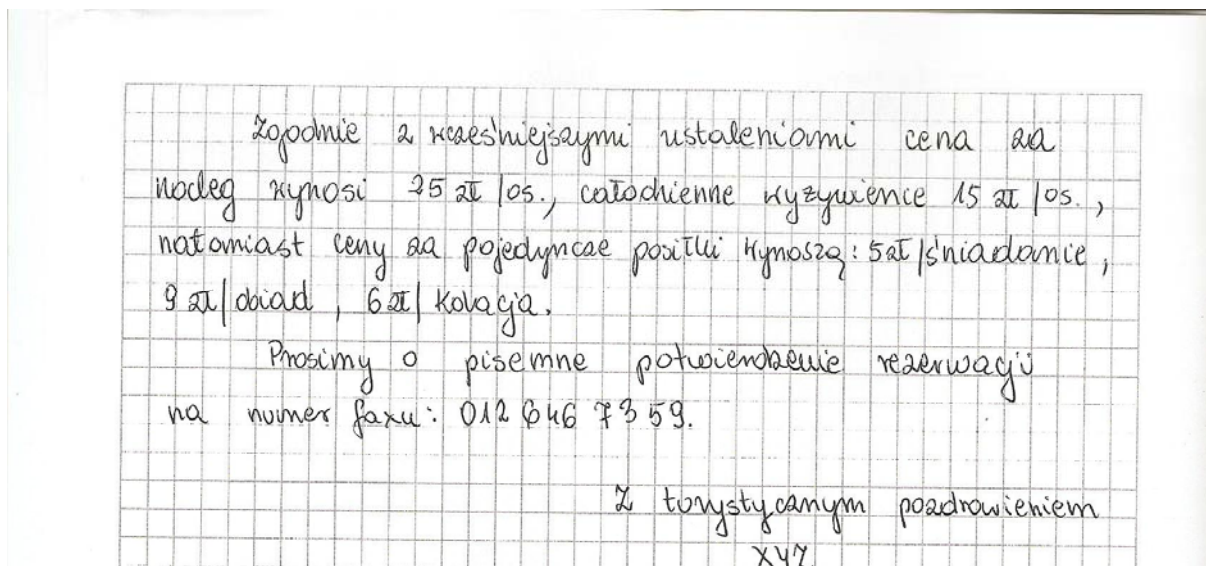 Zgodnie z wcześniejszymi ustaleniami cena za
nocleg wynosi 25 zł/os., całodzienne wyżywienie 15 zł/os.,
natomiast ceny za pojedyncze posiłki wynoszą: 5zł/śniadanie,
9 zł/obiad, 6 zł/kolacja.
Prosimy o pisemne potwierdzenie rezerwacji
na numer faxu: 012 646 73 59.
Z turystycznym pozdrowieniem
XYZ